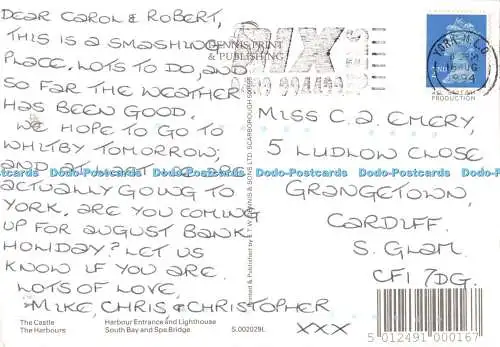 DEAR CAROL & ROBERT,
THIS IS A SMASHING
PLACE. LOTS TO DO, AND
SO FAR THE WEATHER
HAS BEEN GOOD.
WE HOPE TO GO TO
WHITBY TOMORROW,
AND, AT LAST, WE ARE
ACTUALLY GOING TO
YORK. ARE YOU COMING
UP FOR AUGUST BANK
HOLIDAY? LET US
KNOW IF YOU ARE.
LOTS OF LOVE,
MIKE, CHRIS & CHRISTOPHER
XXX
The Castle
The Harbours
Harbour Entrance and Lighthouse
South Bay and Spa Bridge
S.002029L
DENNIS PRINT
& PUBLISHING
YORK M.L.O.
1994
2ND
PRODUCTION
MISS C.A. EMERY,
5 LUDLOW CLOSE
GRANGETOWN,
CARDIFF.
S. GLAM.
CF1 7DG.
5 012491 000167
Dodo-Postcards Dodo-Postcards Dodo-Postcards Dodo-Postcards Dodo-Postcards Dodo-Postcards
Dodo-Postcards Dodo-Postcards Dodo-Postcards Dodo-Postcards Dodo-Postcards Dodo-Postcards